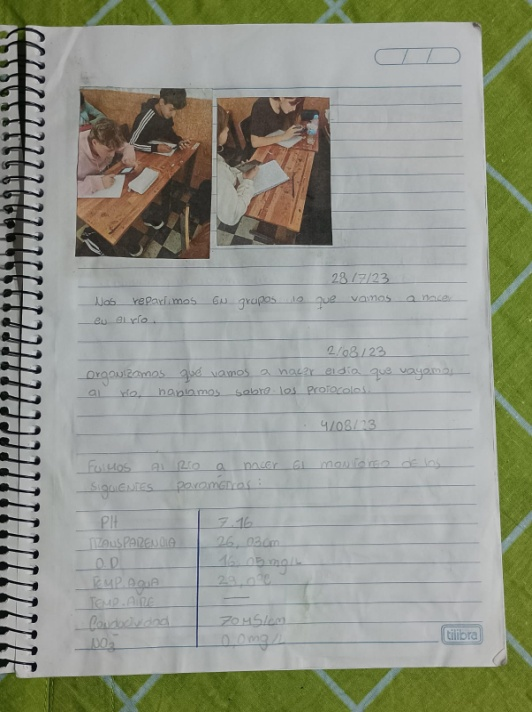 28/7/23
Nos repartimos en grupos lo que vamos a hacer
en el río.
2/08/23
organizamos qué vamos a hacer el día que vayamos
al río, hablamos sobre los protocolos.
4/08/23
Fuimos al Río a hacer el monitoreo de los
siguientes parámetros:
PH 7.16
TRANSPARENCIA 26, cm
O.D. mg/L
TEMP. AGUA
TEMP. AIRE —
Conductividad
NO3 0,0 mg/L
tilibra